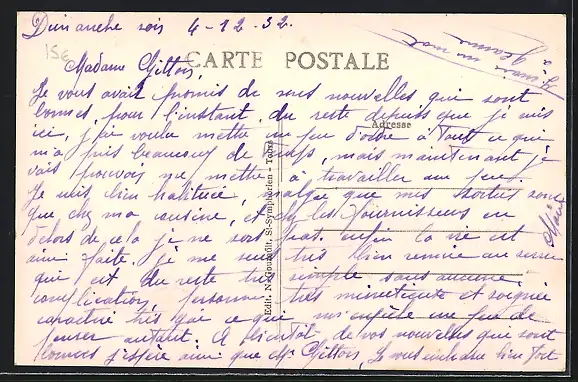 Dimanche soir 4-12-32.
15€
CARTE POSTALE
Madame Gitton,
Je vous avait promis de nouvelles qui sont
bonnes, pour l'instant, du reste depuis que je suis
ici, j'ai voulu mettre un peu d'odre à Tout ce qui
Adresse
m'a pris beaucoup de temps, mais maintenant je
vais pouvoir me mettre à travailler un peu.
Je suis bien habituée, malgre que mes sorties sont
que chez ma cousine, et chez les fournisseurs en
dehors de cela je ne sors pas. enfin la vie est
ainsi faite. Je me sens très bien remise au
qui est du reste très simple sans aucune
complication, personne très minutieuse et soignée
caractère très gai ce qui un peu de
penser autant. A bientôt de vos nouvelles qui sont
bonnes j'espère ainsi que Mr Gitton, Je vous embrasse bien fort
Edit. N. Gourault, St-Symphorien - Tours
Jeanne